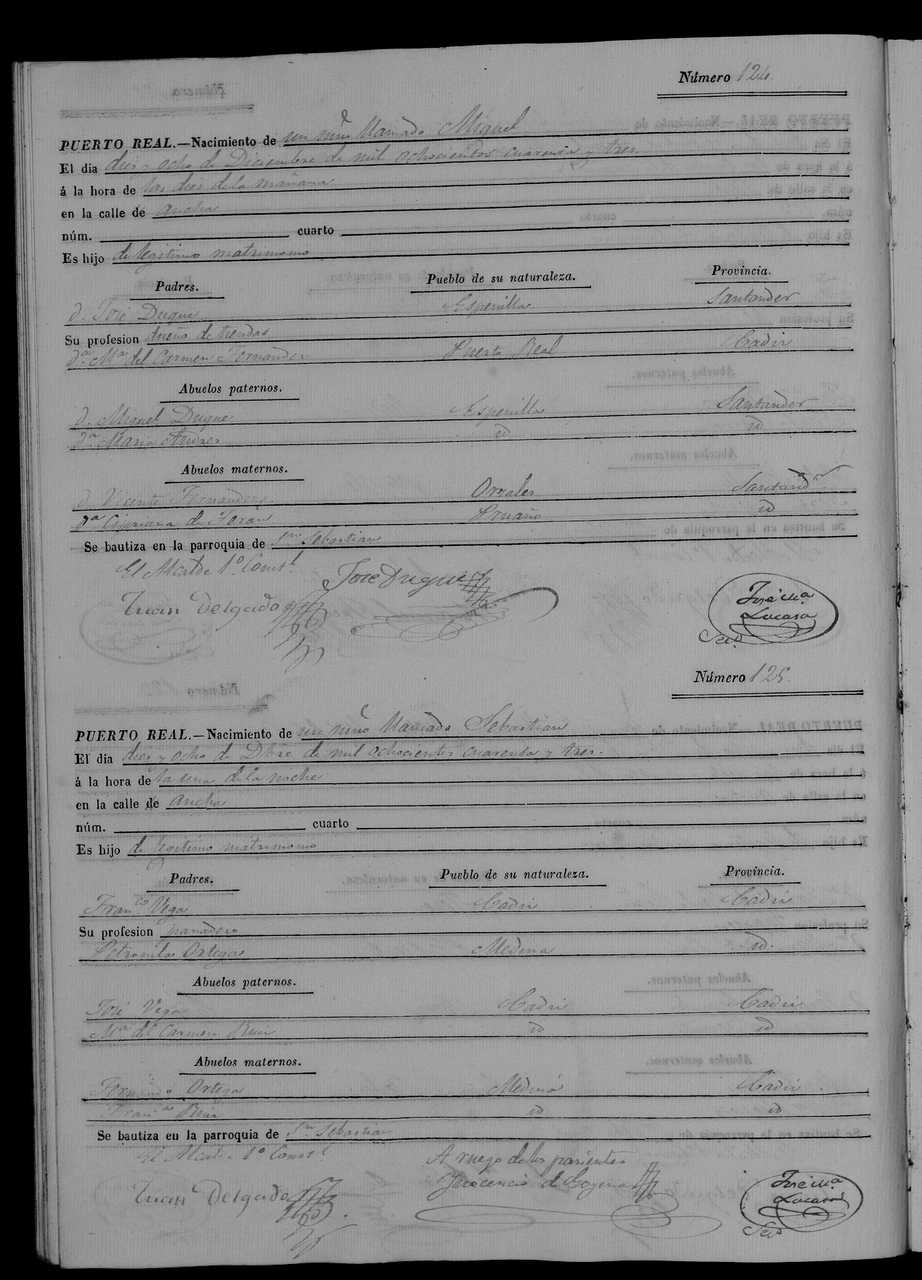 Número 124.
PUERTO REAL.—Nacimiento de un niño llamado Miguel
El dia diez y ocho de Diciembre de mil ochocientos cuarenta y tres
á la hora de las diez de la mañana
en la calle de Ancha
núm. cuarto
Es hijo de legitimo matrimonio
Padres. Pueblo de su naturaleza. Provincia.
D. José Duque Espinilla Santander
Su profesion dueño de tiendas
Dª. Mª. del Carmen Fernandez Puerto Real Cadiz
Abuelos paternos.
D. Miguel Duque Espinilla Santander
Dª Maria id id
Abuelos maternos.
D. Vicente Fernandez Santandr
Dª Cipriana de id
Se bautiza en la parroquia de Sn Sebastian
El Alcalde 1º Constl
José Duque
Juan Delgado
José Mª
Lucasa
Seco
Número 125.
PUERTO REAL.—Nacimiento de un niño llamado Sebastian
El dia diez y ocho de Dbre de mil ochocientos cuarenta y tres.
á la hora de la una de la noche
en la calle de Ancha
núm. cuarto
Es hijo de legitimo matrimonio
Padres. Pueblo de su naturaleza. Provincia.
Franco Vega Cadiz Cadiz
Su profesion panadero
Petronila Ortega Medina id.
Abuelos paternos.
José Vega Cadiz Cadiz
Mª del Carmen Ruiz id id
Abuelos maternos.
Fernando Ortega Medina Cadiz
Franca Ruiz id id
Se bautiza en la parroquia de Sn Sebastian
El Alcalde 1º Constl
A ruego de los parientes
Juan Delgado
Inocencio de
José Mª
Lucasa